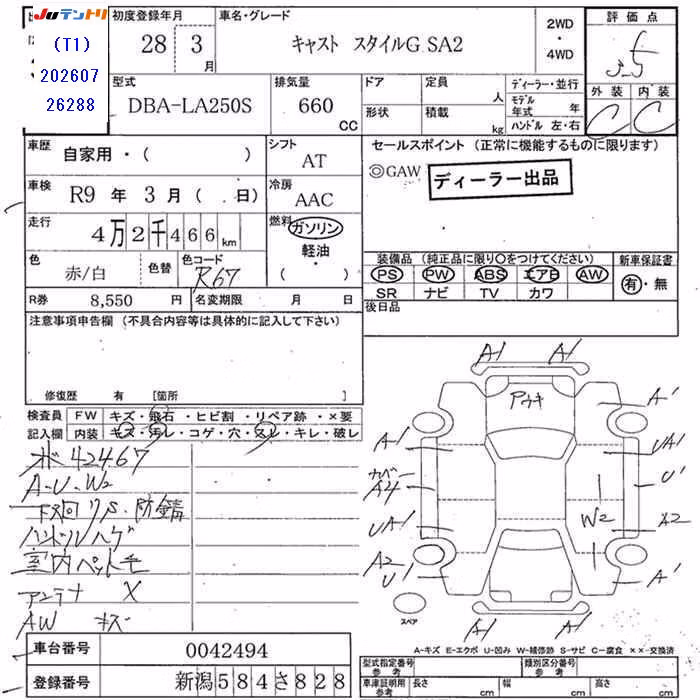 JUテントリ
(T1)
202607
26288
初度登録年月
28 3 月
車名・グレード
キャスト スタイルG SA2
2WD
・
4WD
評価点
外装 内装
C C
型式
DBA-LA250S
排気量
660 CC
ドア
形状
定員 人
積載 kg
ディーラー・並行
モデル年式 年
ハンドル 左・右
車歴
自家用・( )
シフト
AT
セールスポイント (正常に機能するものに限ります)
◎GAW
ディーラー出品
車検
R9 年 3 月 ( . 日)
冷房
AAC
走行
4万2千466km
燃料
ガソリン
軽油・
( )
色
赤/白
色替
色コード
R67
装備品 (純正品に限り○をつけてください)
PS PW ABS エアB AW
SR ナビ TV カワ
新車保証書
有・無
R券 8,550 円
名変期限 月 日
後日品
注意事項申告欄 (不具合内容等は具体的に記入して下さい)
修復歴 有 [箇所 ]
検査員記入欄
FW キズ・飛石・ヒビ割・リペア跡・×要
内装 キズ・汚レ・コゲ・穴・スレ・キレ・破レ
42467
A-U-W2
下回りS・防錆
ハンドルハゲ
室内ペット毛
アンテナ X
AW キズ
A1 A1
A'
A1 UA1
カバー
A4 U'
UA1 W2 A2
A2
U1 A'
スペア
A1 A1
A-キズ E-エクボ U-凹み W-補修跡 S-サビ C-腐食 ××-交換済
車台番号 0042494
登録番号 新潟584さ828
型式指定番号
参考
類別区分番号
参考
車庫証明用
参考
長さ cm
幅 cm
高さ cm